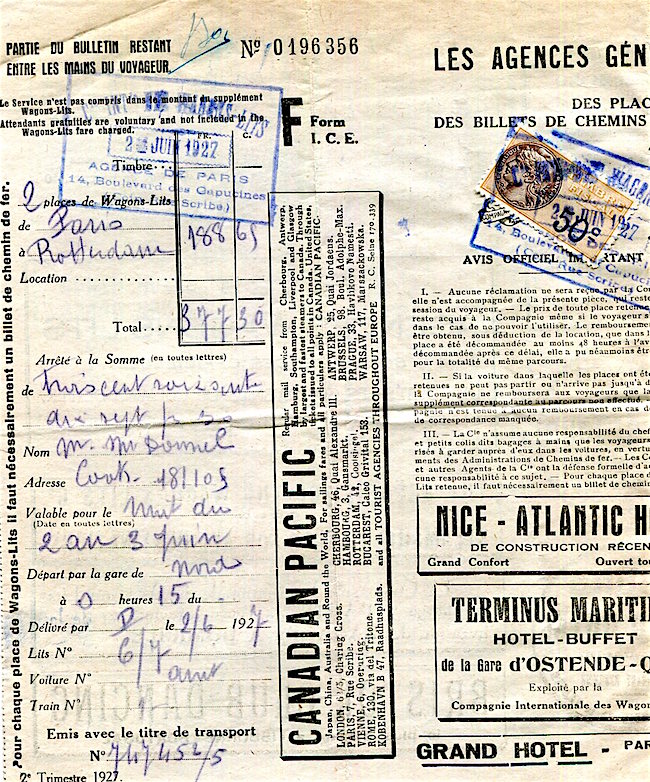 PARTIE DU BULLETIN RESTANT
ENTRE LES MAINS DU VOYAGEUR
Nº 0196356
Le Service n'est pas compris dans le montant du supplément
Wagons-Lits.
Attendants gratuities are voluntary and not included in the
Wagons-Lits fare charged.
F Form
I. C. E.
FR. C.
JUIN 1927
AGENCE DE PARIS
14, Boulevard des Capucines
Scribe.)
Timbre
2 places de Wagons-Lits
de Paris
à Rotterdam 188 65
Location
Total 377 30
Arrêté à la Somme (en toutes lettres)
de Trois cent soixante
dix sept f 30
Nom Mr. McDonnel
Adresse Cook 181105
Valable pour le Nuit du
(Date en toutes lettres)
2 au 3 Juin
Départ par la gare de Nord
à 0 heures 15 du
Délivré par le 2/6 1927
Lits Nº 6/7
Voiture Nº
Train Nº 1
Emis avec le titre de transport
Nº 747452/5
2e Trimestre 1927.
Pour chaque place de Wagons-Lits il faut nécessairement un billet de chemin de fer.
CANADIAN PACIFIC
Regular mail service from Cherbourg, Antwerp,
Hamburg, Southampton, Liverpool and Glasgow
by largest and fastest steamers to Canada. Through
tickets issued to all points in Canada, United States,
Japan, China, Australia and Round the World. For sailings fares and all particulars apply : CANADIAN PACIFIC.
LONDON, 62/5, Charing Cross. CHERBOURG, 46, Quai Alexandre III. ANTWERP, 25, Quai Jordaens.
PARIS, 7, Rue Scribe. HAMBOURG, 3, Gansmarkt. BRUSSELS, 98, Boul. Adolphe-Max.
VIENNE, 6, Opernring. ROTTERDAM, 42, Coolsingel. PRAGUE, 33, Havlickovo Namesti.
ROME, 130, via del Tritone. BUCAREST, Calea Grivitei 153. WARSAW, 117, Marszackowska.
KOBENHAVN B 47, Raadhusplads. and all TOURIST AGENCIES THROUGHOUT EUROPE R. C. Seine 170-339
LES AGENCES GÉN
DES PLAC
DES BILLETS DE CHEMINS
JUIN 1927
50c
14, Boulevard des Capucines
Rue Scribe
AVIS OFFICIEL IMPORTANT
I. — Aucune réclamation ne sera reçue par la Com
elle n'est accompagnée de la présente pièce, qui reste
session du voyageur. — Le prix de toute place retenue
reste acquis à la Compagnie même si le voyageur s
dans le cas de ne pouvoir l'utiliser. Le remboursement
être obtenu, sous déduction de la location, que dans
place a été décommandée au moins 48 heures à l'av
décommandée après ce délai, elle a pu néanmoins être
pour la totalité du même parcours.
II. — Si la voiture dans laquelle les places ont été
retenues ne peut pas partir ou n'arrive pas jusqu'à d
la Compagnie ne remboursera aux voyageurs que la
supplément correspondante au parcours non effectué.
pagnie n'est tenue à aucun remboursement en cas de
de correspondance manquée.
III. — La Cie n'assume aucune responsabilité du chef
et petits colis dits bagages à mains que les voyageurs
risés à garder auprès d'eux dans les voitures, en vertu
ments des Administrations de Chemins de fer. — Les Co
et autres Agents de la Cie ont la défense formelle d'a
cune responsabilité à ce sujet. — Pour chaque place d
Lits retenue, il faut nécessairement un billet de chemin
NICE - ATLANTIC H
DE CONSTRUCTION RÉCEN
Grand Confort Ouvert tou
TERMINUS MARITI
HOTEL-BUFFET
de la Gare d'OSTENDE-Q
Exploité par la
Compagnie Internationale des Wagon
GRAND HOTEL - PAR